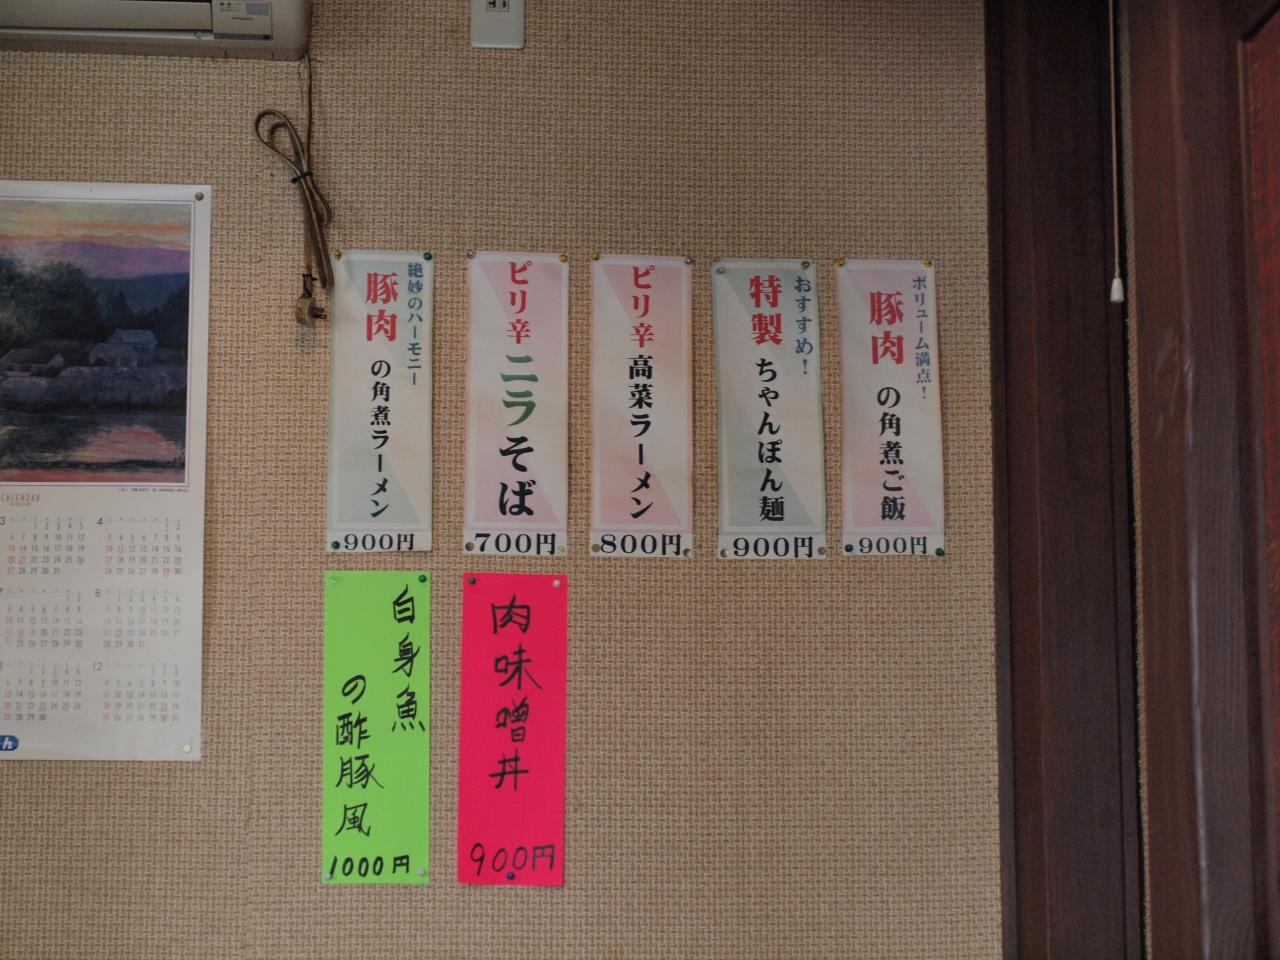 絶妙のハーモニー
豚肉の角煮ラーメン
900円
ピリ辛ニラそば
700円
ピリ辛高菜ラーメン
800円
おすすめ!
特製ちゃんぽん麺
900円
ボリューム満点!
豚肉の角煮ご飯
900円
白身魚
の酢豚風
1000円
肉味噌丼
900円
CALENDAR
4
8
12